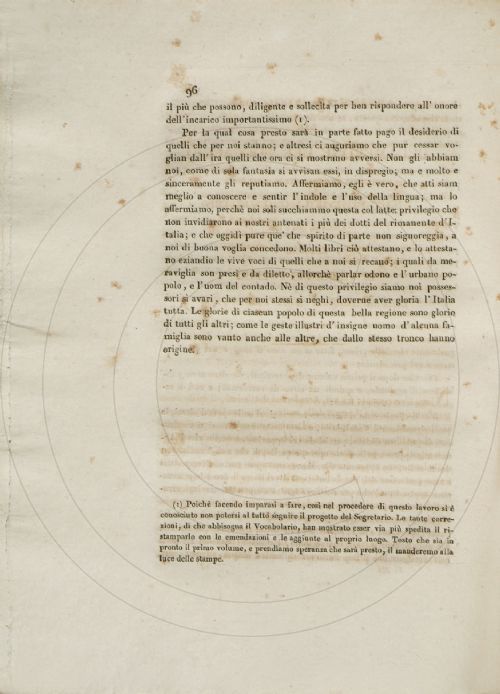 96
il più che possono, diligente e sollecita per ben rispondere all' onore
dell'incarico importantissimo (1).
Per la qual cosa presto sarà in parte fatto pago il desiderio di
quelli che per noi stanno; e altresì ci auguriamo che pur cessar vo-
glian dall'ira quelli che ora ci si mostrano avversi. Non gli abbiam
noi, come di sola fantasia si avvisan essi, in dispregio; ma e molto e
sinceramente gli reputiamo. Affermiamo, egli è vero, che atti siam
meglio a conoscere e sentir l'indole e l'uso della lingua; ma lo
affermiamo, perchè noi soli succhiammo questa col latte; privilegio che
non invidiarono ai nostri antenati i più dei dotti del rimanente d'I-
talia; e che oggidì pure que' che spirito di parte non signoreggia, a
noi di buona voglia concedono. Molti libri ciò attestano, e lo attesta-
no eziandio le vive voci di quelli che a noi si recano; i quali da me-
raviglia son presi e da diletto, allorchè parlar odono e l'urbano po-
polo, e l'uom del contado. Nè di questo privilegio siamo noi posses-
sori sì avari, che per noi stessi si neghi, doverne aver gloria l'Italia
tutta. Le glorie di ciascun popolo di questa bella regione sono glorie
di tutti gli altri; come le geste illustri d'insigne uomo d'alcuna fa-
miglia sono vanto anche alle altre, che dallo stesso tronco hanno
origine.
(1) Poichè facendo imparasi a fare, così nel procedere di questo lavoro si è
conosciuto non potersi al tutto seguire il progetto del Segretario. Le tante corre-
zioni, di che abbisogna il Vocabolario, han mostrato esser via più spedita il ri-
stamparlo con le emendazioni e le aggiunte al proprio luogo. Tosto che sia in
pronto il primo volume, e prendiamo speranza che sarà presto, il manderemo alla
luce delle stampe.